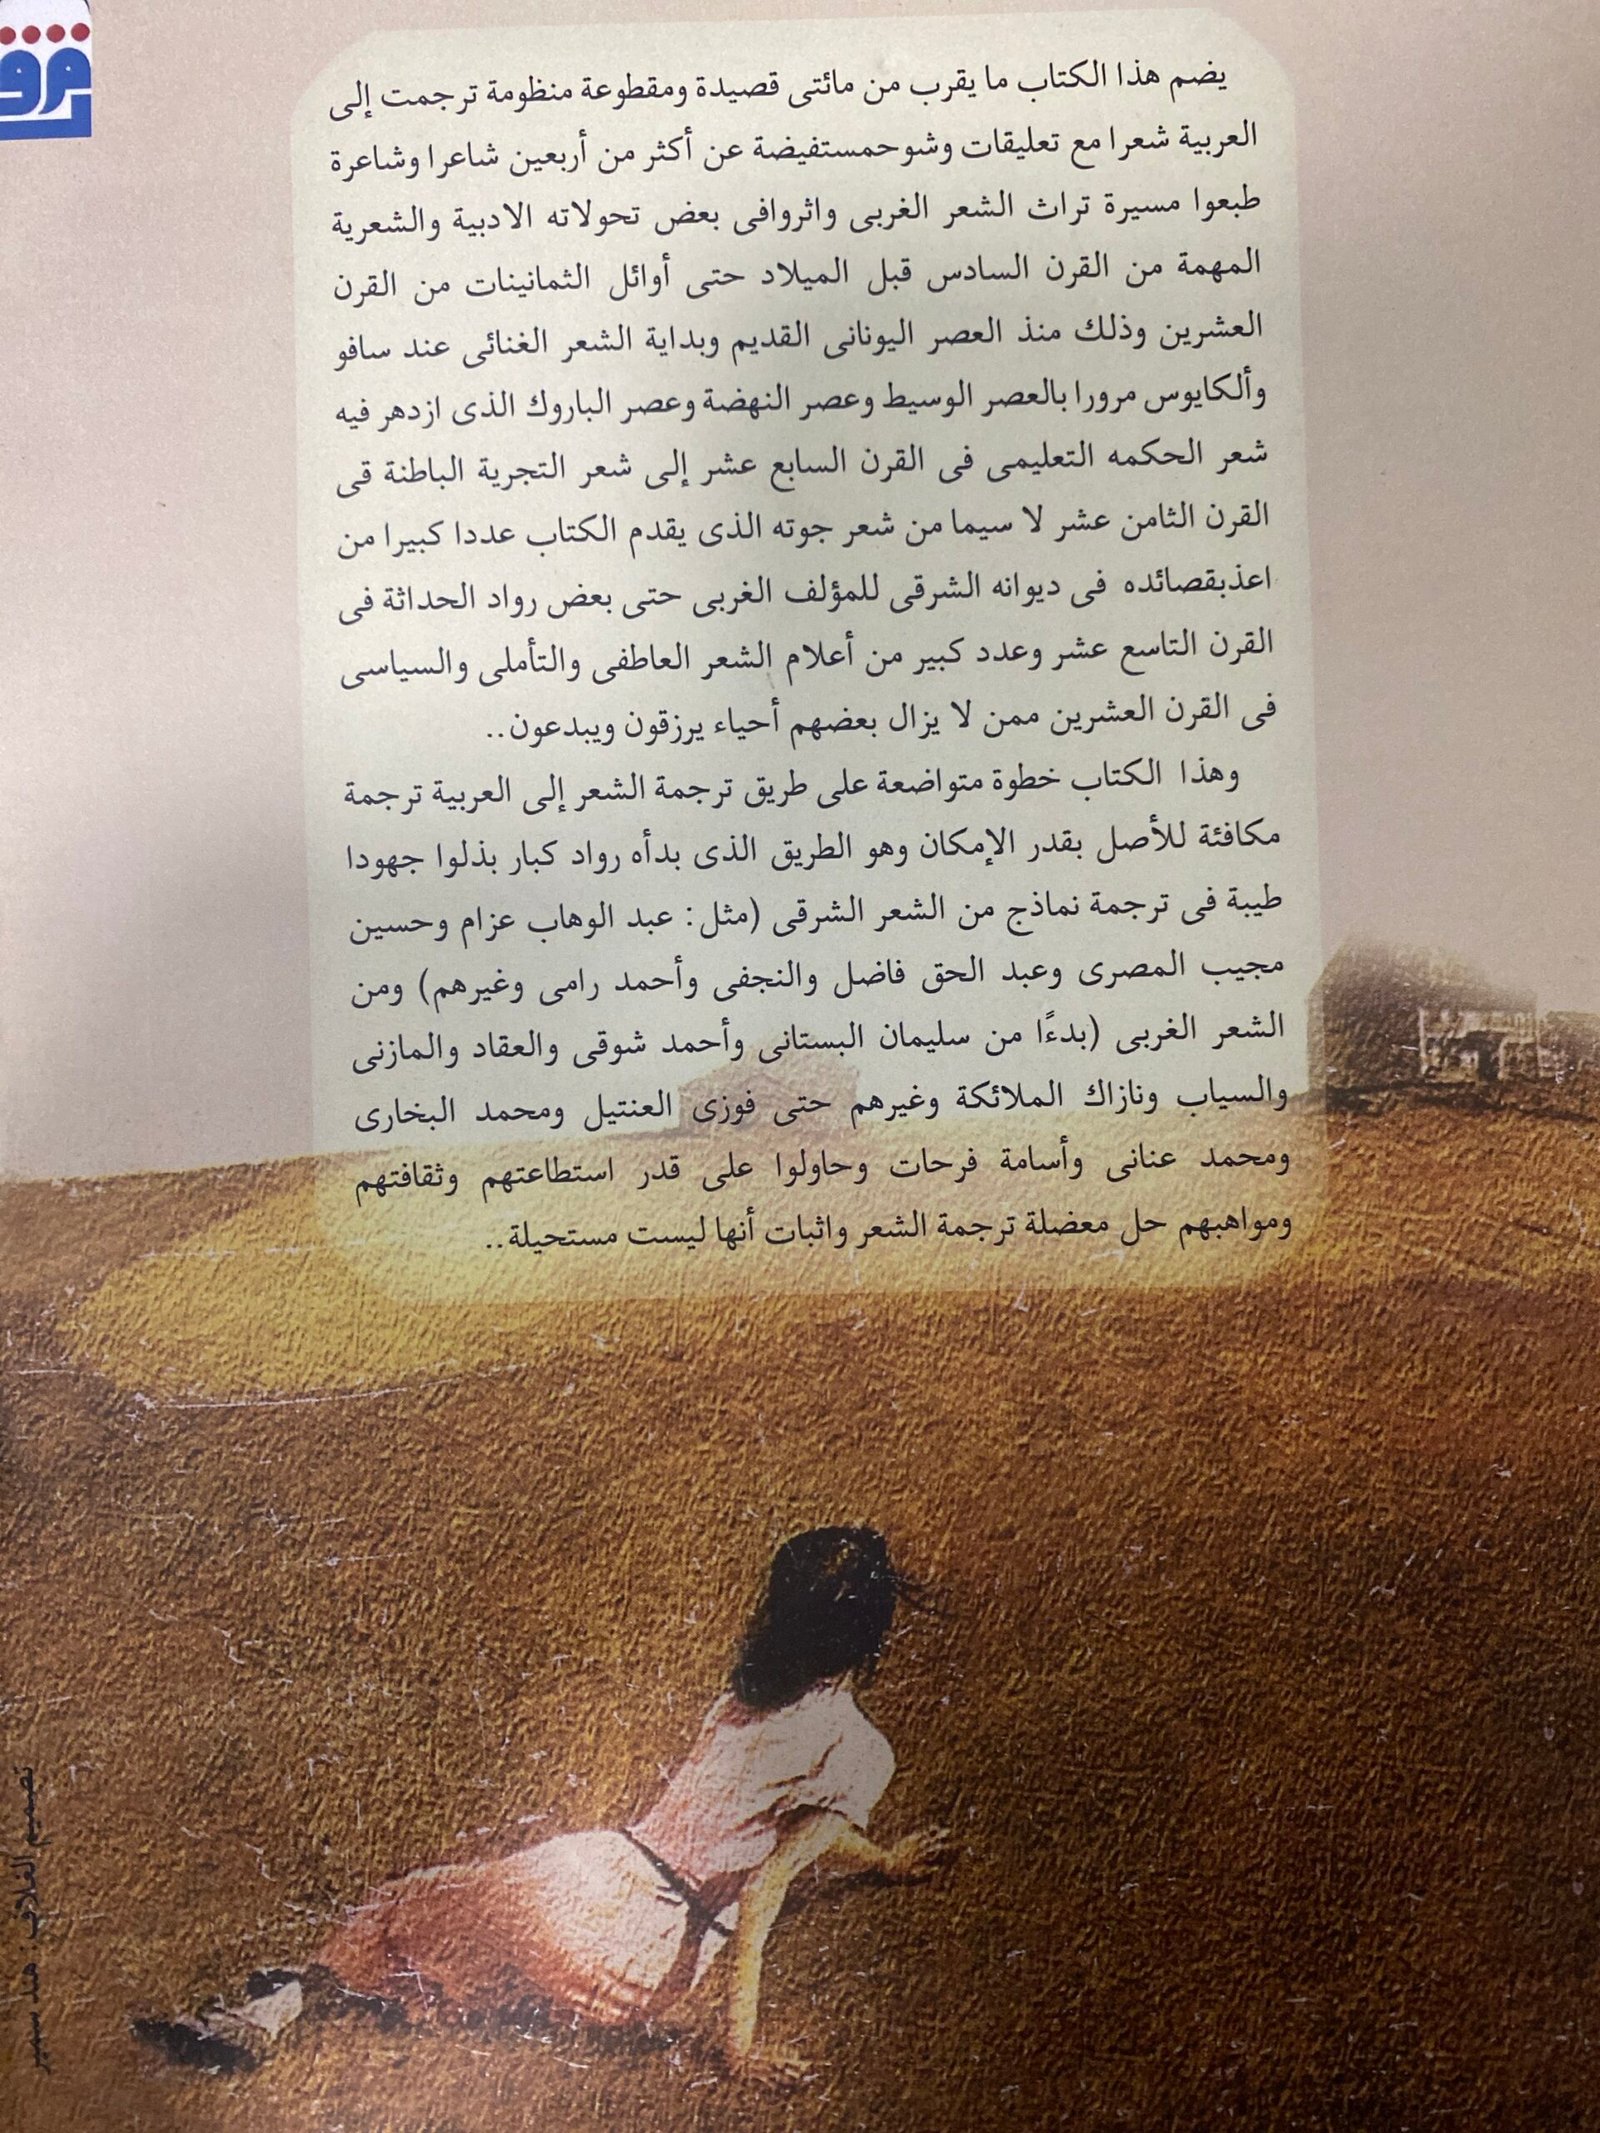 يضم هذا الكتاب ما يقرب من مائتى قصيدة ومقطوعة منظومة ترجمت إلى
العربية شعرا مع تعليقات وشوحمستفيضة عن أكثر من أربعين شاعرا وشاعرة
طبعوا مسيرة تراث الشعر الغربى واثروافى بعض تحولاته الادبية والشعرية
المهمة من القرن السادس قبل الميلاد حتى أوائل الثمانينات من القرن
العشرين وذلك منذ العصر اليونانى القديم وبداية الشعر الغنائى عند سافو
وألكايوس مرورا بالعصر الوسيط وعصر النهضة وعصر الباروك الذى ازدهر فيه
شعر الحكمه التعليمى فى القرن السابع عشر إلى شعر التجرية الباطنة قى
القرن الثامن عشر لا سيما من شعر جوته الذى يقدم الكتاب عددا كبيرا من
اعذبقصائده فى ديوانه الشرقى للمؤلف الغربى حتى بعض رواد الحداثة فى
القرن التاسع عشر وعدد كبير من أعلام الشعر العاطفى والتأملى والسياسى
فى القرن العشرين ممن لا يزال بعضهم أحياء يرزقون ويبدعون..
وهذا الكتاب خطوة متواضعة على طريق ترجمة الشعر إلى العربية ترجمة
مكافئة للأصل بقدر الإمكان وهو الطريق الذى بدأه رواد كبار بذلوا جهودا
طيبة فى ترجمة نماذج من الشعر الشرقى (مثل: عبد الوهاب عزام وحسين
مجيب المصرى وعبد الحق فاضل والنجفى وأحمد رامى وغيرهم) ومن
الشعر الغربى (بدءًا من سليمان البستانى وأحمد شوقى والعقاد والمازنى
والسياب ونازاك الملائكة وغيرهم حتى فوزى العنتيل ومحمد البخارى
ومحمد عنانى وأسامة فرحات وحاولوا على قدر استطاعتهم وثقافتهم
ومواهبهم حل معضلة ترجمة الشعر واثبات أنها ليست مستحيلة..
تصميم الغلاف: هند سمير